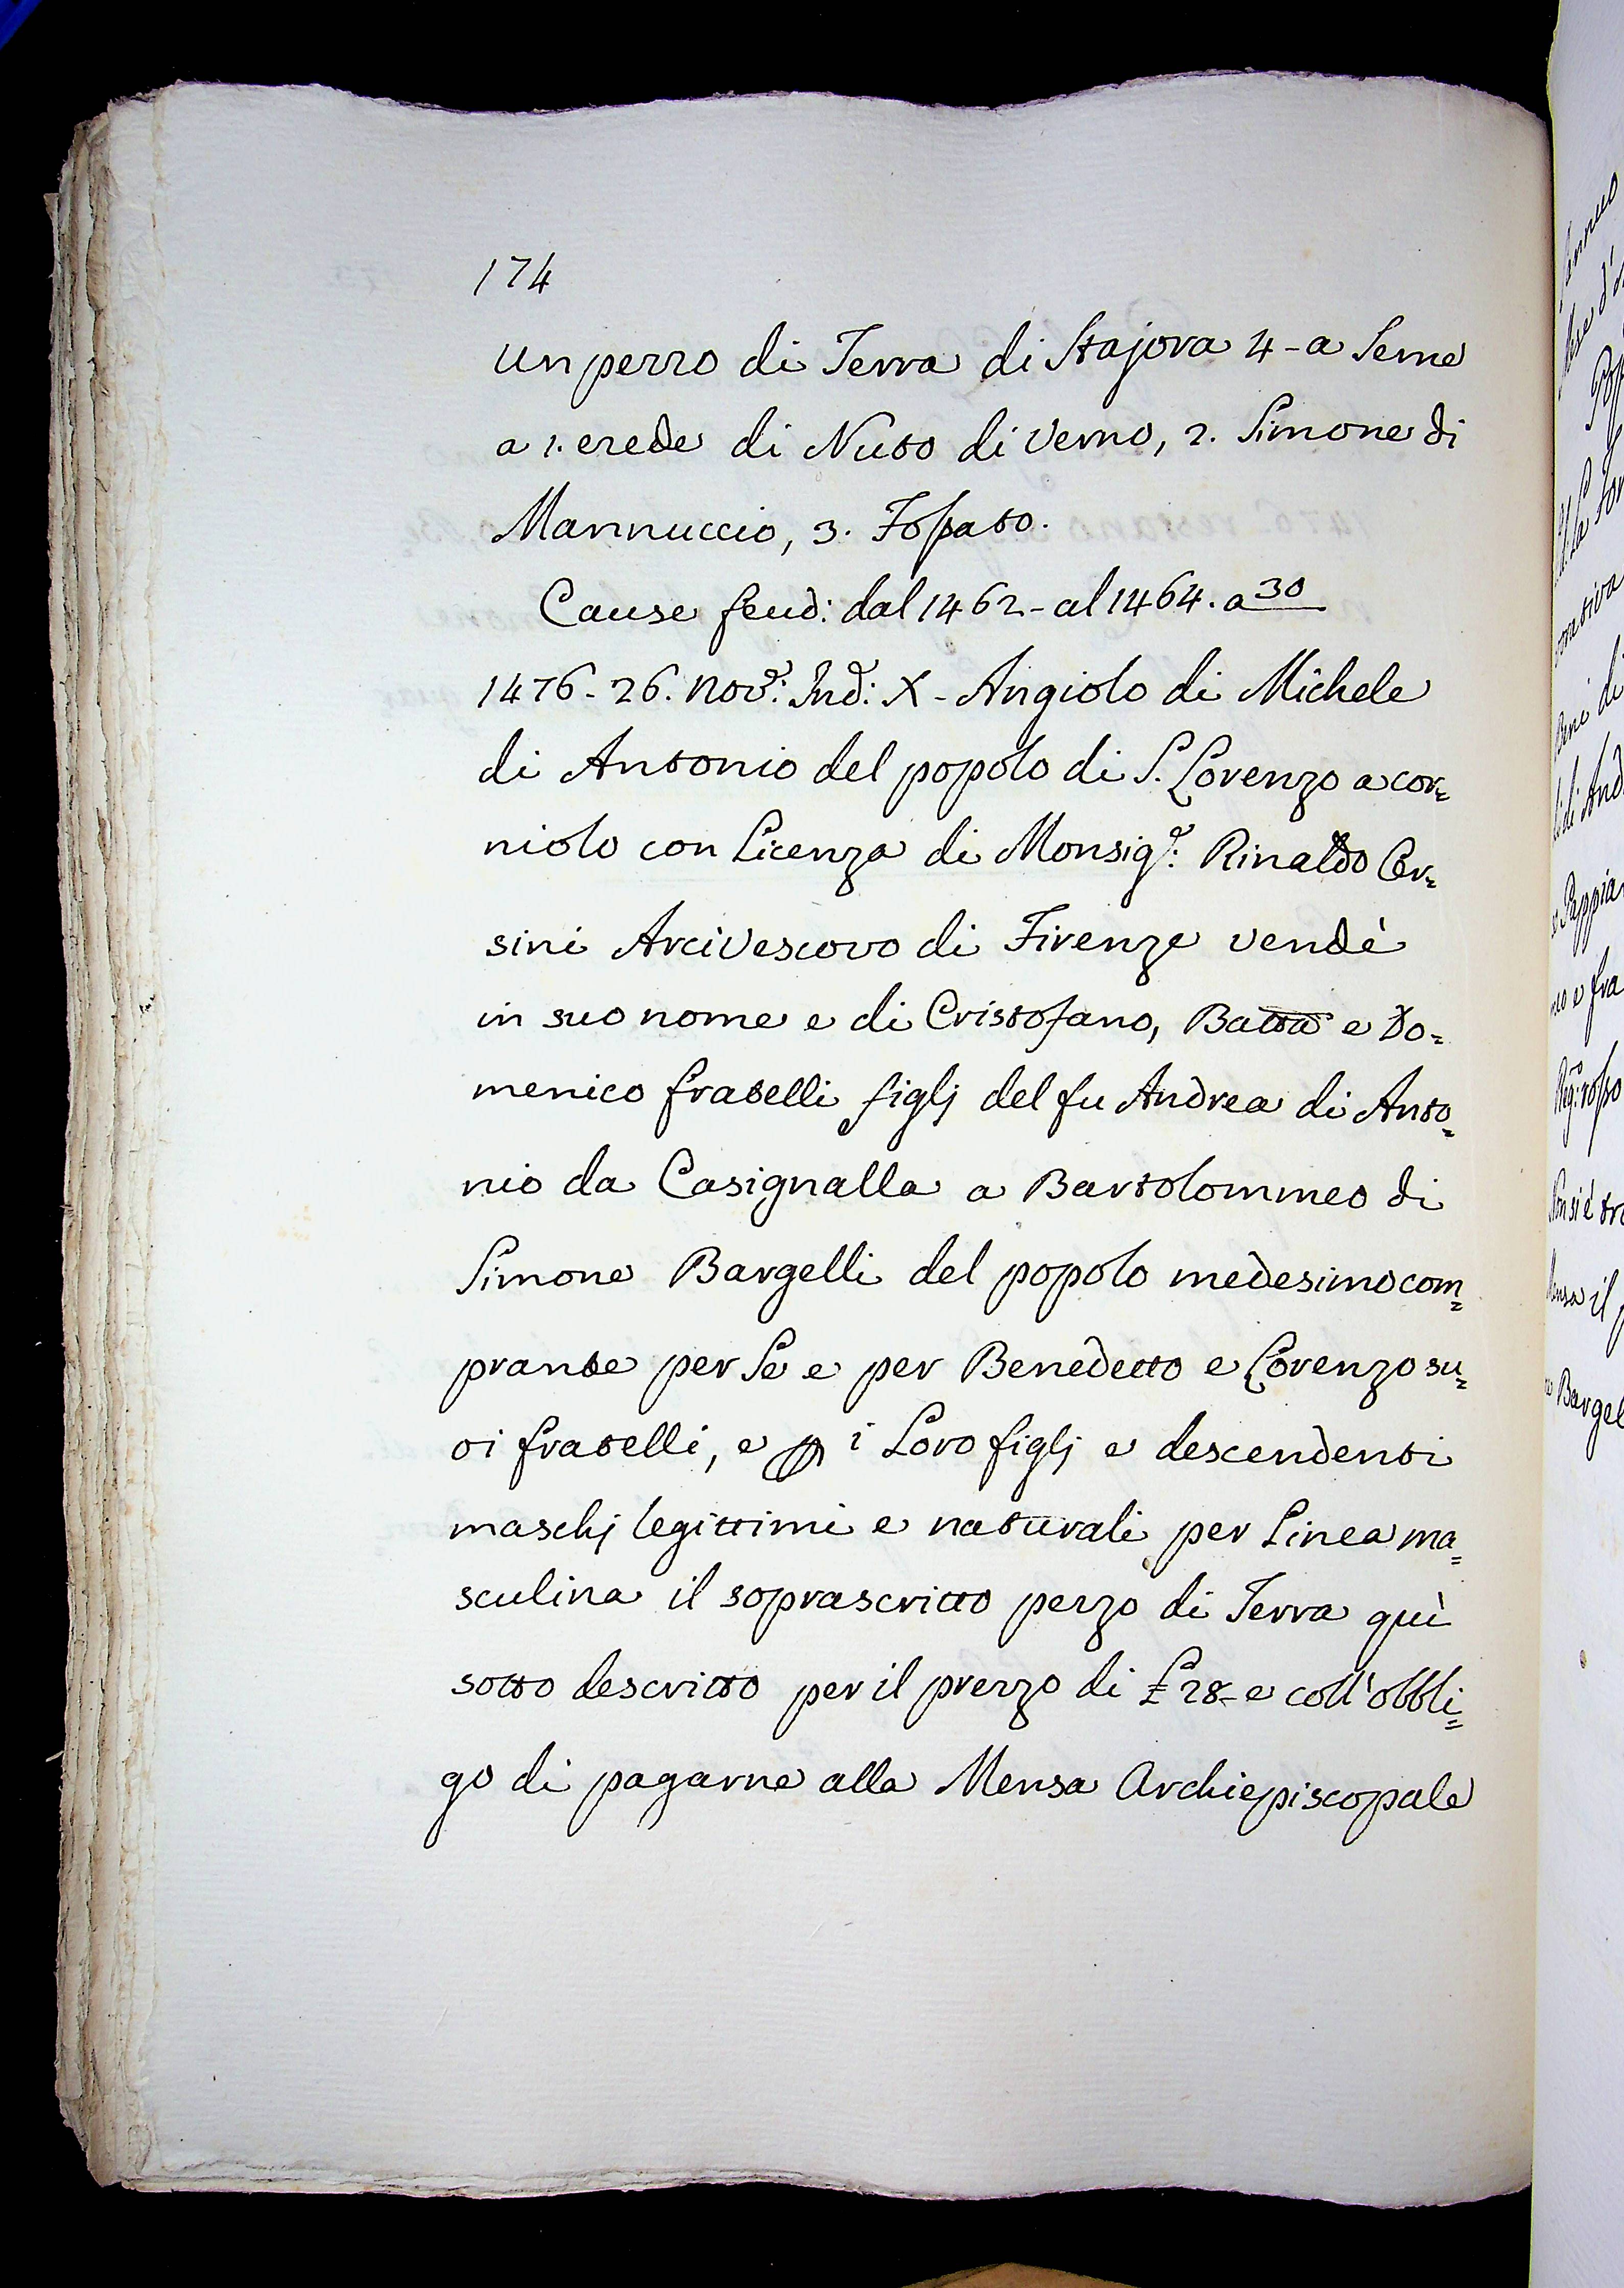 174
un pezzo di Terra di Stajora 4 - a Seme
a 1. erede di Nuto di Verno, 2. Simone di
Mannuccio, 3. Fossato.
Cause feud: dal 1462 - al 1464. a 30
1476 - 26. Nov.e: Ind: X - Angiolo di Michele
di Antonio del popolo di S. Lorenzo a cor=
niolo con Licenza di Monsig.e: Rinaldo Cor=
sini Arcivescovo di Firenze vendè
in suo nome e di Cristofano, Batta e Do=
menico fratelli figlj del fu Andrea di Anto=
nio da Casignalla a Bartolommeo di
Simone Bargelli del popolo medesimo com=
prante per Se e per Benedetto e Lorenzo su=
oi fratelli, e p i Loro figlj e descendenti
maschj legittimi e naturali per Linea ma=
sculina il soprascritto pezzo di Terra quì
sotto descritto per il prezzo di £ 28 - e coll'obbli=
go di pagarne alla Mensa Archiepiscopale